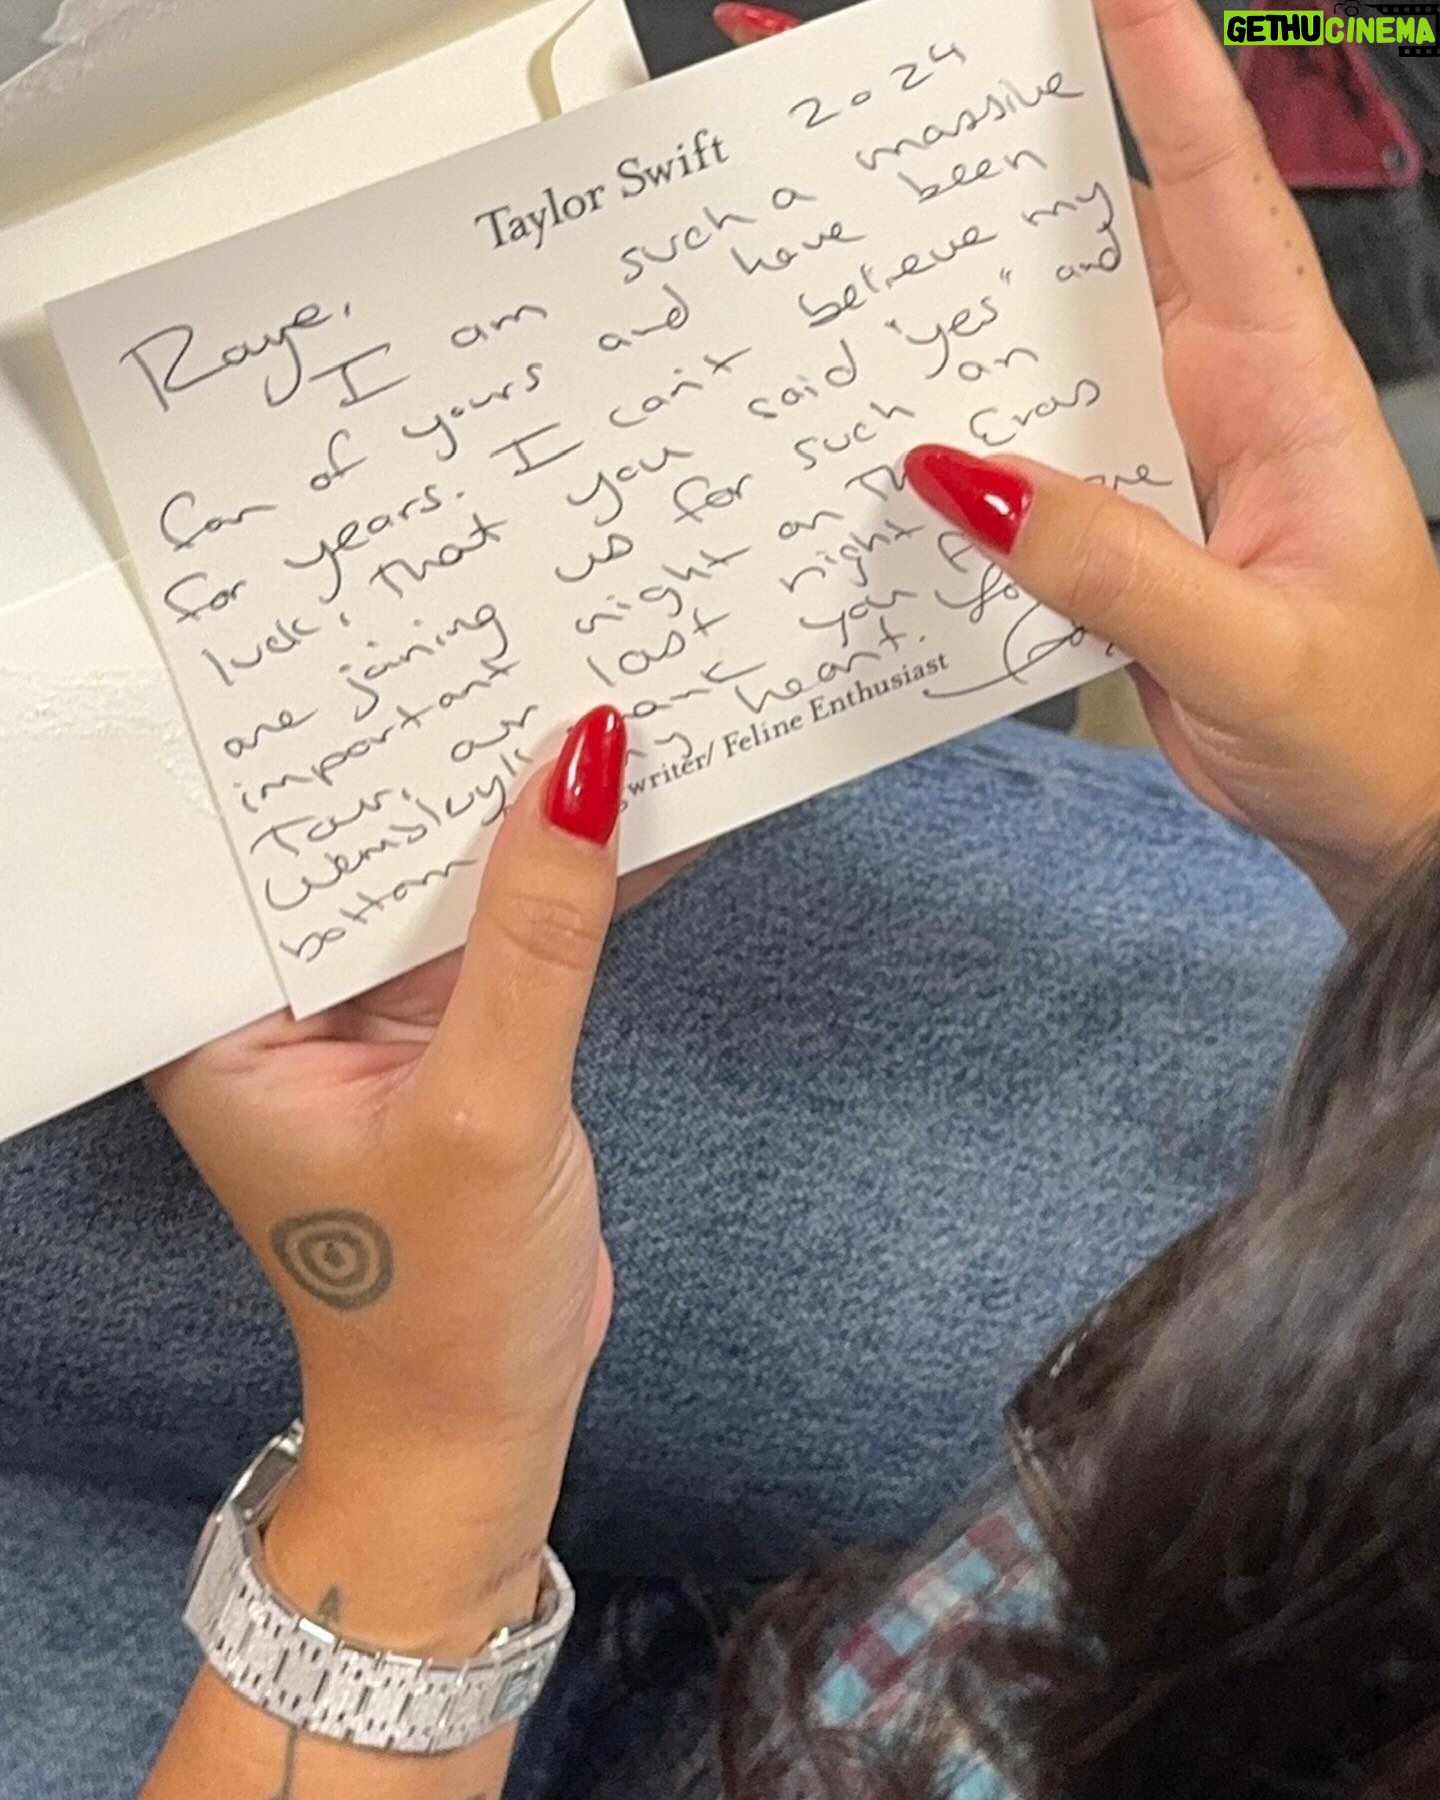 GETHUCINEMA
2024
Taylor Swift
Raye,
I am such a massive
fan of yours and have been
for years. I can't believe my
luck, that you said "yes" and
are joining us for such an
important night on The Eras
Tour, our last night
Wembley! you
bottom my heart.
writer/ Feline Enthusiast